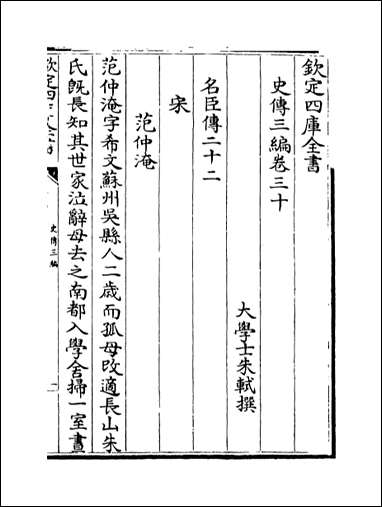 欽定四庫全書
史傳三編卷三十
大學士朱軾撰
名臣傳二十二
宋
范仲淹
范仲淹字希文蘇州吳縣人二歲而孤母改適長山朱
氏既長知其世家泣辭母去之南都入學舍掃一室晝
欽定四庫全書
史傳三編
一